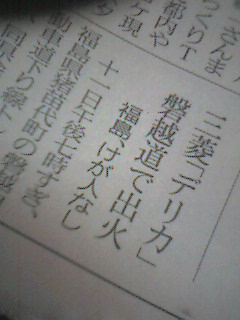 さんま
つくりT
都内や
ケ現
三菱「デリカ」
磐越道で出火
福島、けが人なし
十一日午後七時すぎ、
福島県猪苗代町の磐越自
動車道下り線